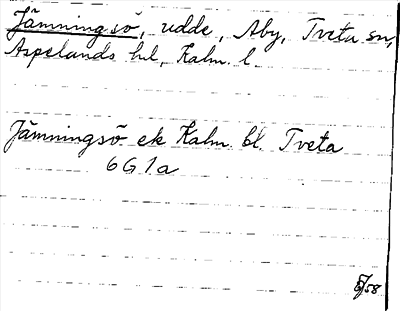 Jämningsö, udde, Åby, Tveta sn,
Aspelands hd, Kalm. l.
Jämningsö ek Kalm. bl. Tveta
6G1a
58